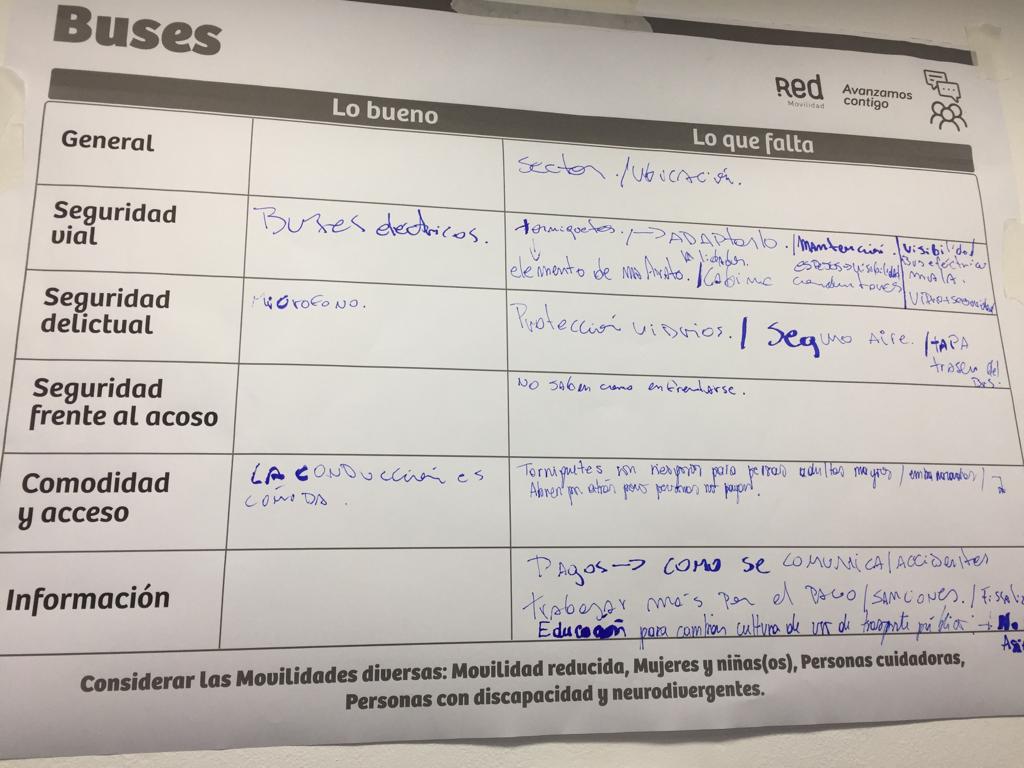 Buses
Red
Movilidad
Avanzamos
contigo
Lo bueno
Lo que falta
General
sector. / Ubicación.
Seguridad
vial
Buses electricos.
torniquetes. / → ADAPtarlo. / Mantención. / Visibilidad
elemento de maltrato. / Cabina
Bus eléctrico
mala.
Seguridad
delictual
Micrófono.
Protección vidrios. / Seguro Aire. / tAPA
trasera del
Bus.
Seguridad
frente al acoso
No saben como enfrentarse.
Comodidad
y acceso
LA CONDUCCIÓN es
CÓMODA.
Torniquetes son riesgosos para personas adultas mayores / embarazadas /
Abren por atrás pero personas no pagan.
Información
Pagos → como se comunica / Accidentes
trabajar más por el PAGO / SANCIONES. / Fiscaliz
Educación para cambiar cultura de uso de trasporte público
Considerar las Movilidades diversas: Movilidad reducida, Mujeres y niñas(os), Personas cuidadoras,
Personas con discapacidad y neurodivergentes.